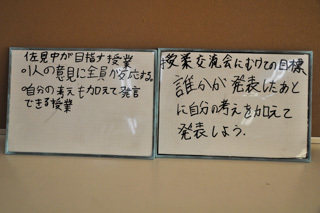 佐見中が目指す授業
・1人の意見に全員が反応する。
・自分の考えも加えて発言
できる授業
授業交流会にむけての目標
誰かが発表したあと
に自分の考えを加えて
発表しよう。